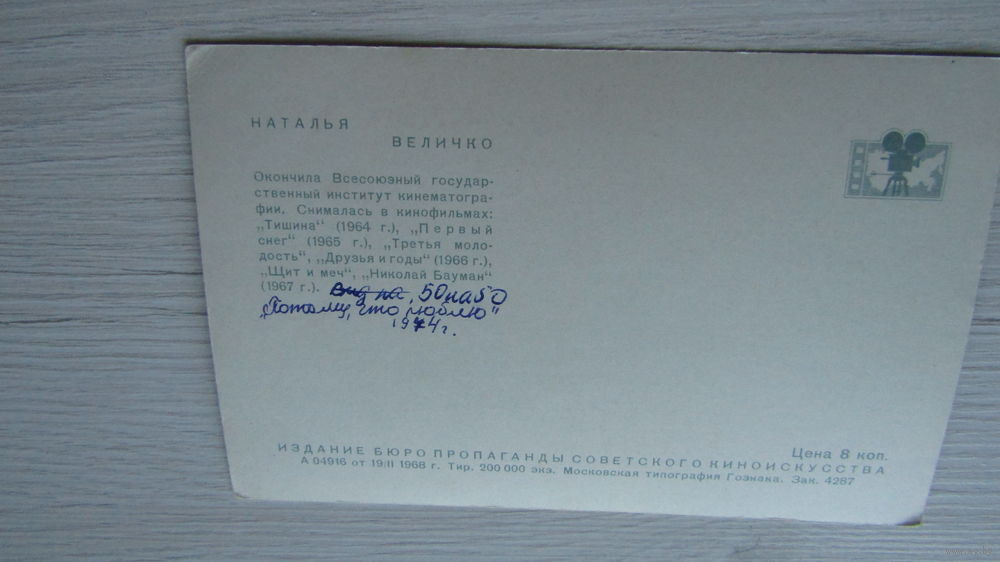 НАТАЛЬЯ
ВЕЛИЧКО
Окончила Всесоюзный государ-
ственный институт кинематогра-
фии. Снималась в кинофильмах:
„Тишина“ (1964 г.), „Первый
снег“ (1965 г.), „Третья моло-
дость“, „Друзья и годы“ (1966 г.),
„Щит и меч“, „Николай Бауман“
(1967 г.). 50 на 50
„Потому, что люблю“
1974 г.
Цена 8 коп.
ИЗДАНИЕ БЮРО ПРОПАГАНДЫ СОВЕТСКОГО КИНОИСКУССТВА
А 04916 от 19/II 1968 г. Тир. 200 000 экз. Московская типография Гознака. Зак. 4287